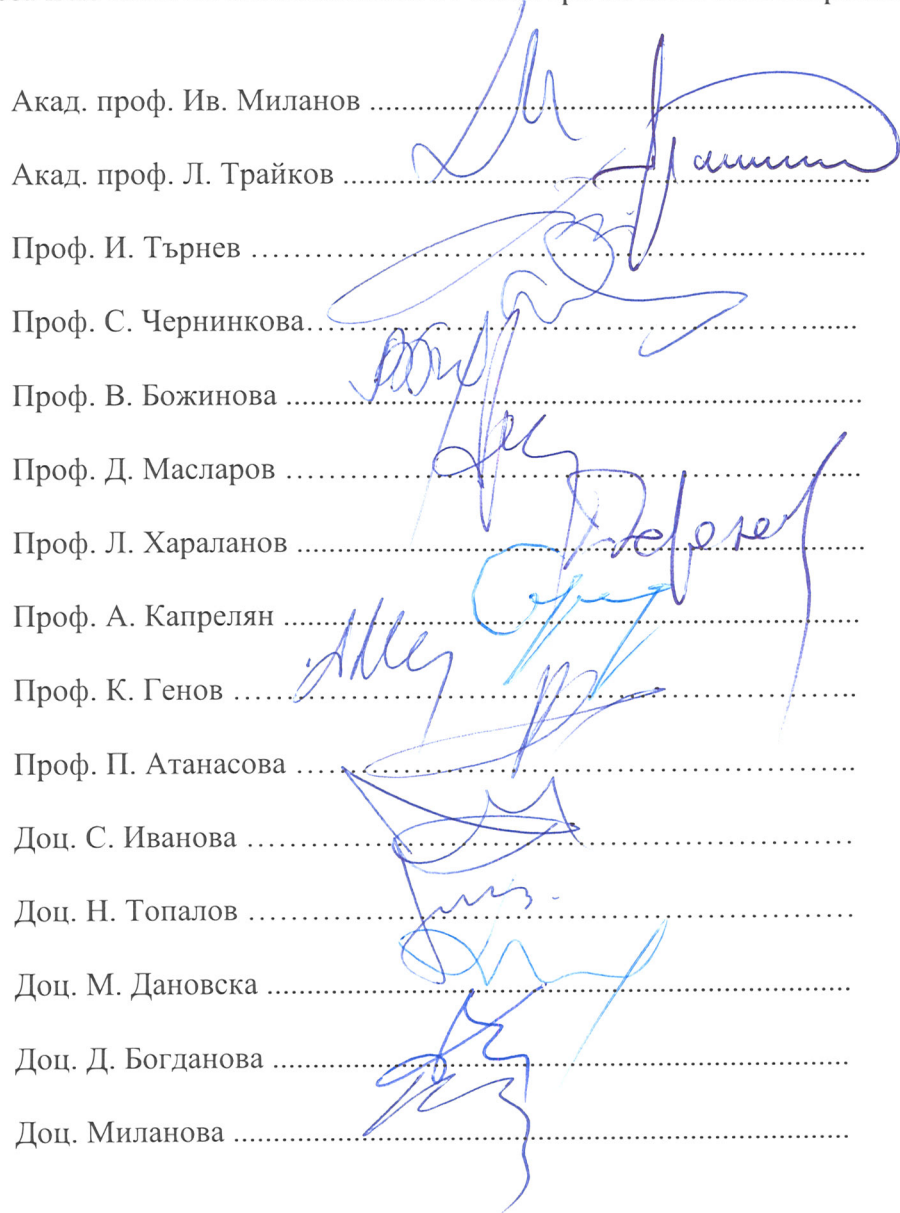 Акад. проф. Ив. Миланов ..........................................................
Акад. проф. Л. Трайков ..........................................................
Проф. И. Търнев ..........................................................
Проф. С. Чернинкова..........................................................
Проф. В. Божинова ..........................................................
Проф. Д. Масларов ..........................................................
Проф. Л. Хараланов ..........................................................
Проф. А. Капрелян ..........................................................
Проф. К. Генов ..........................................................
Проф. П. Атанасова ..........................................................
Доц. С. Иванова ..........................................................
Доц. Н. Топалов ..........................................................
Доц. М. Дановска ..........................................................
Доц. Д. Богданова ..........................................................
Доц. Миланова ..........................................................